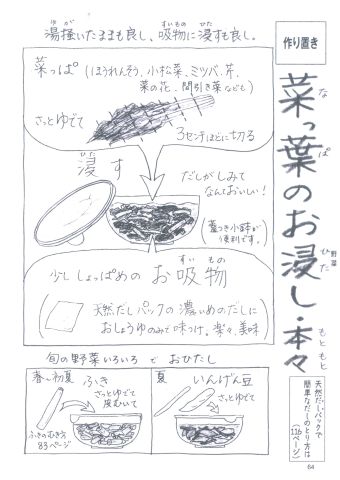 作り置き
菜っ葉のお浸し・本々
な ぱ ひた もと もと
野菜
天然だしパックで
簡単なだしのとり方は
(116ページ)
湯掻いたままも良し、吸物に浸すも良し。
ゆが すいもの ひた
菜っぱ(ほうれんそう、小松菜、ミツバ、芹、
菜の花、間引き菜なども)
さっとゆでて
3センチほどに切る
ひた
浸す
だしがしみて
なんておいしい!
(蓋つき小鉢が
便利です。)
すい もの
少ししょっぱめのお吸物
天然だしパックの濃いめのだしに
おしょうゆのみで味つけ。楽々、美味
旬の野菜いろいろで おひたし
春〜初夏 ふき
さっとゆでて
皮むいて
ふきのむき方
83ページ
夏 いんげん豆
さっとゆでて
64